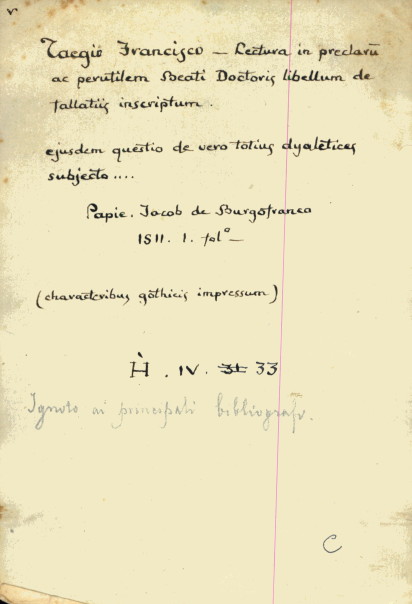 v
Taegio Francisco — Lectura in preclarū
ac perutilem Beati Doctoris libellum de
fallatiis inscriptum.
ejusdem questio de vero totius dyaletices
subjecto....
Papie. Jacob de Burgofranco
1511. 1. folº—
(characteribus gothicis impressum)
H̀. IV. 31 33
Ignoto ai principali bibliografi.
C